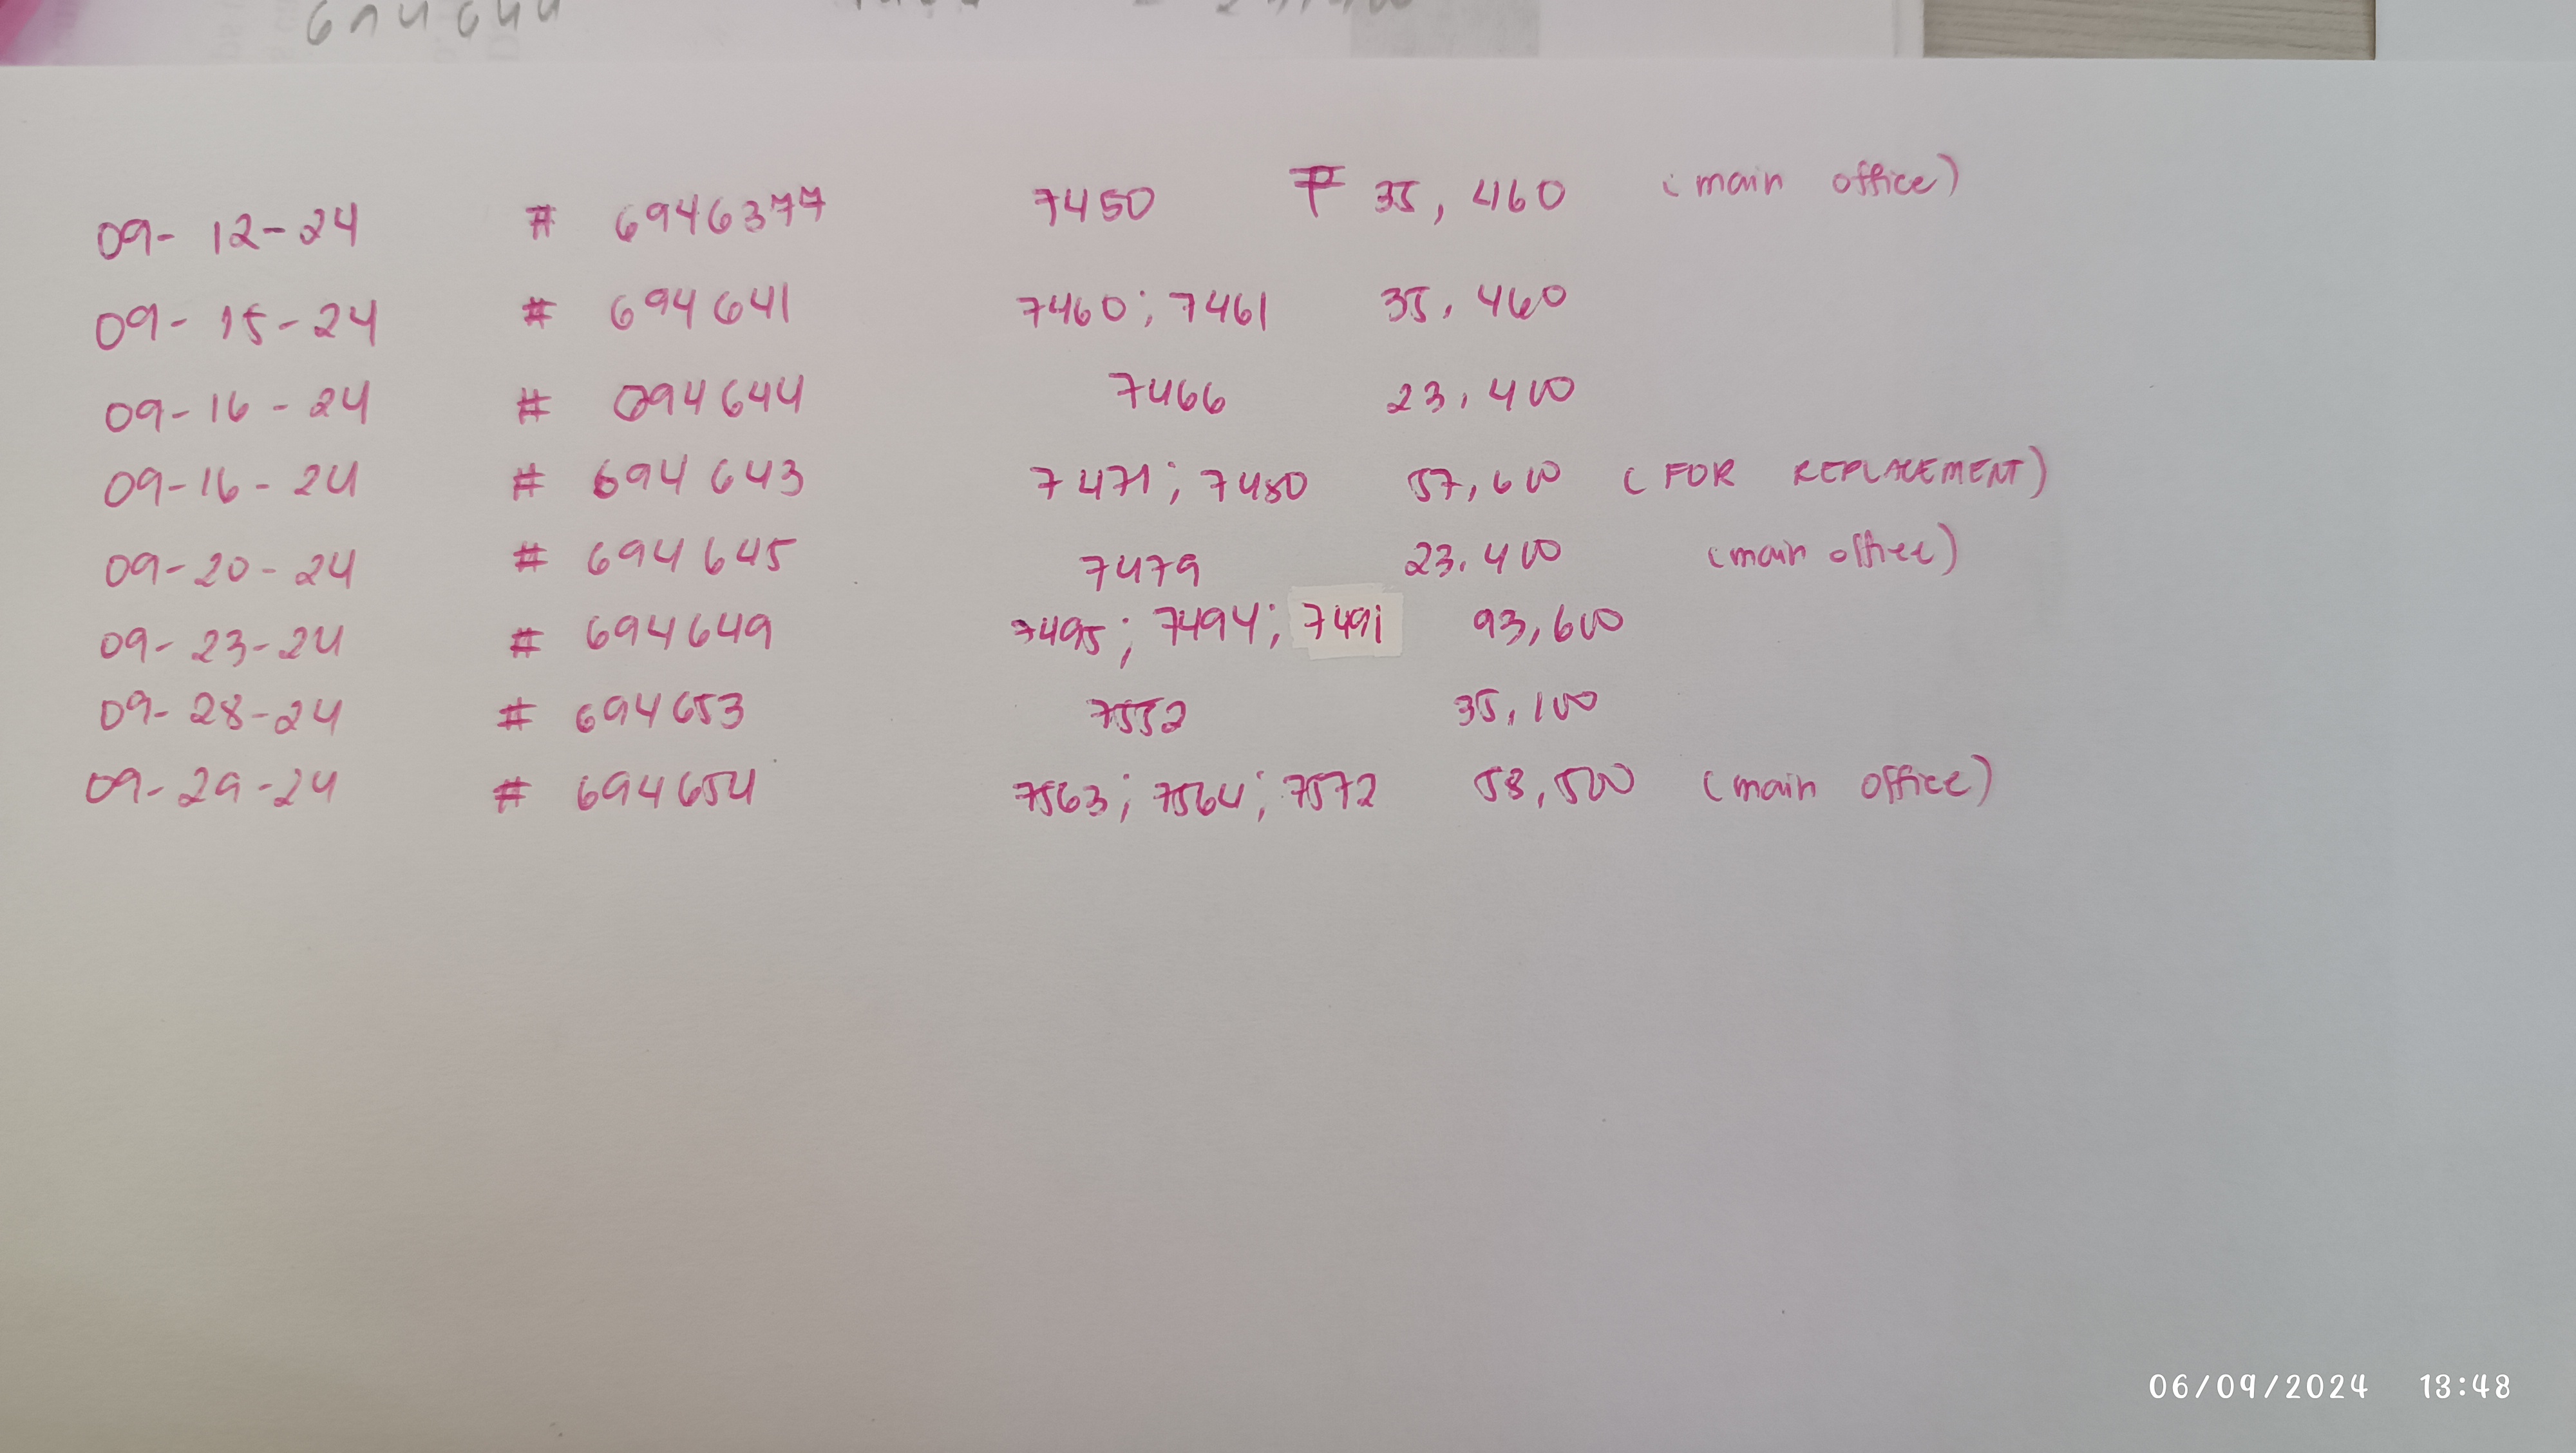 09-12-24 # 6946377 7450 ₱ 35,460 (main office)
09-15-24 # 694641 7460; 7461 35,460
09-16-24 # 694644 7466 23,400
09-16-24 # 694643 7471; 7480 57,600 (FOR REPLACEMENT)
09-20-24 # 694645 7479 23.400 (main office)
09-23-24 # 694649 7495; 7494; 7491 93,600
09-28-24 # 694653 7552 35,100
09-29-24 # 694654 7563; 7564; 7572 58,500 (main office)
06/09/2024 13:48